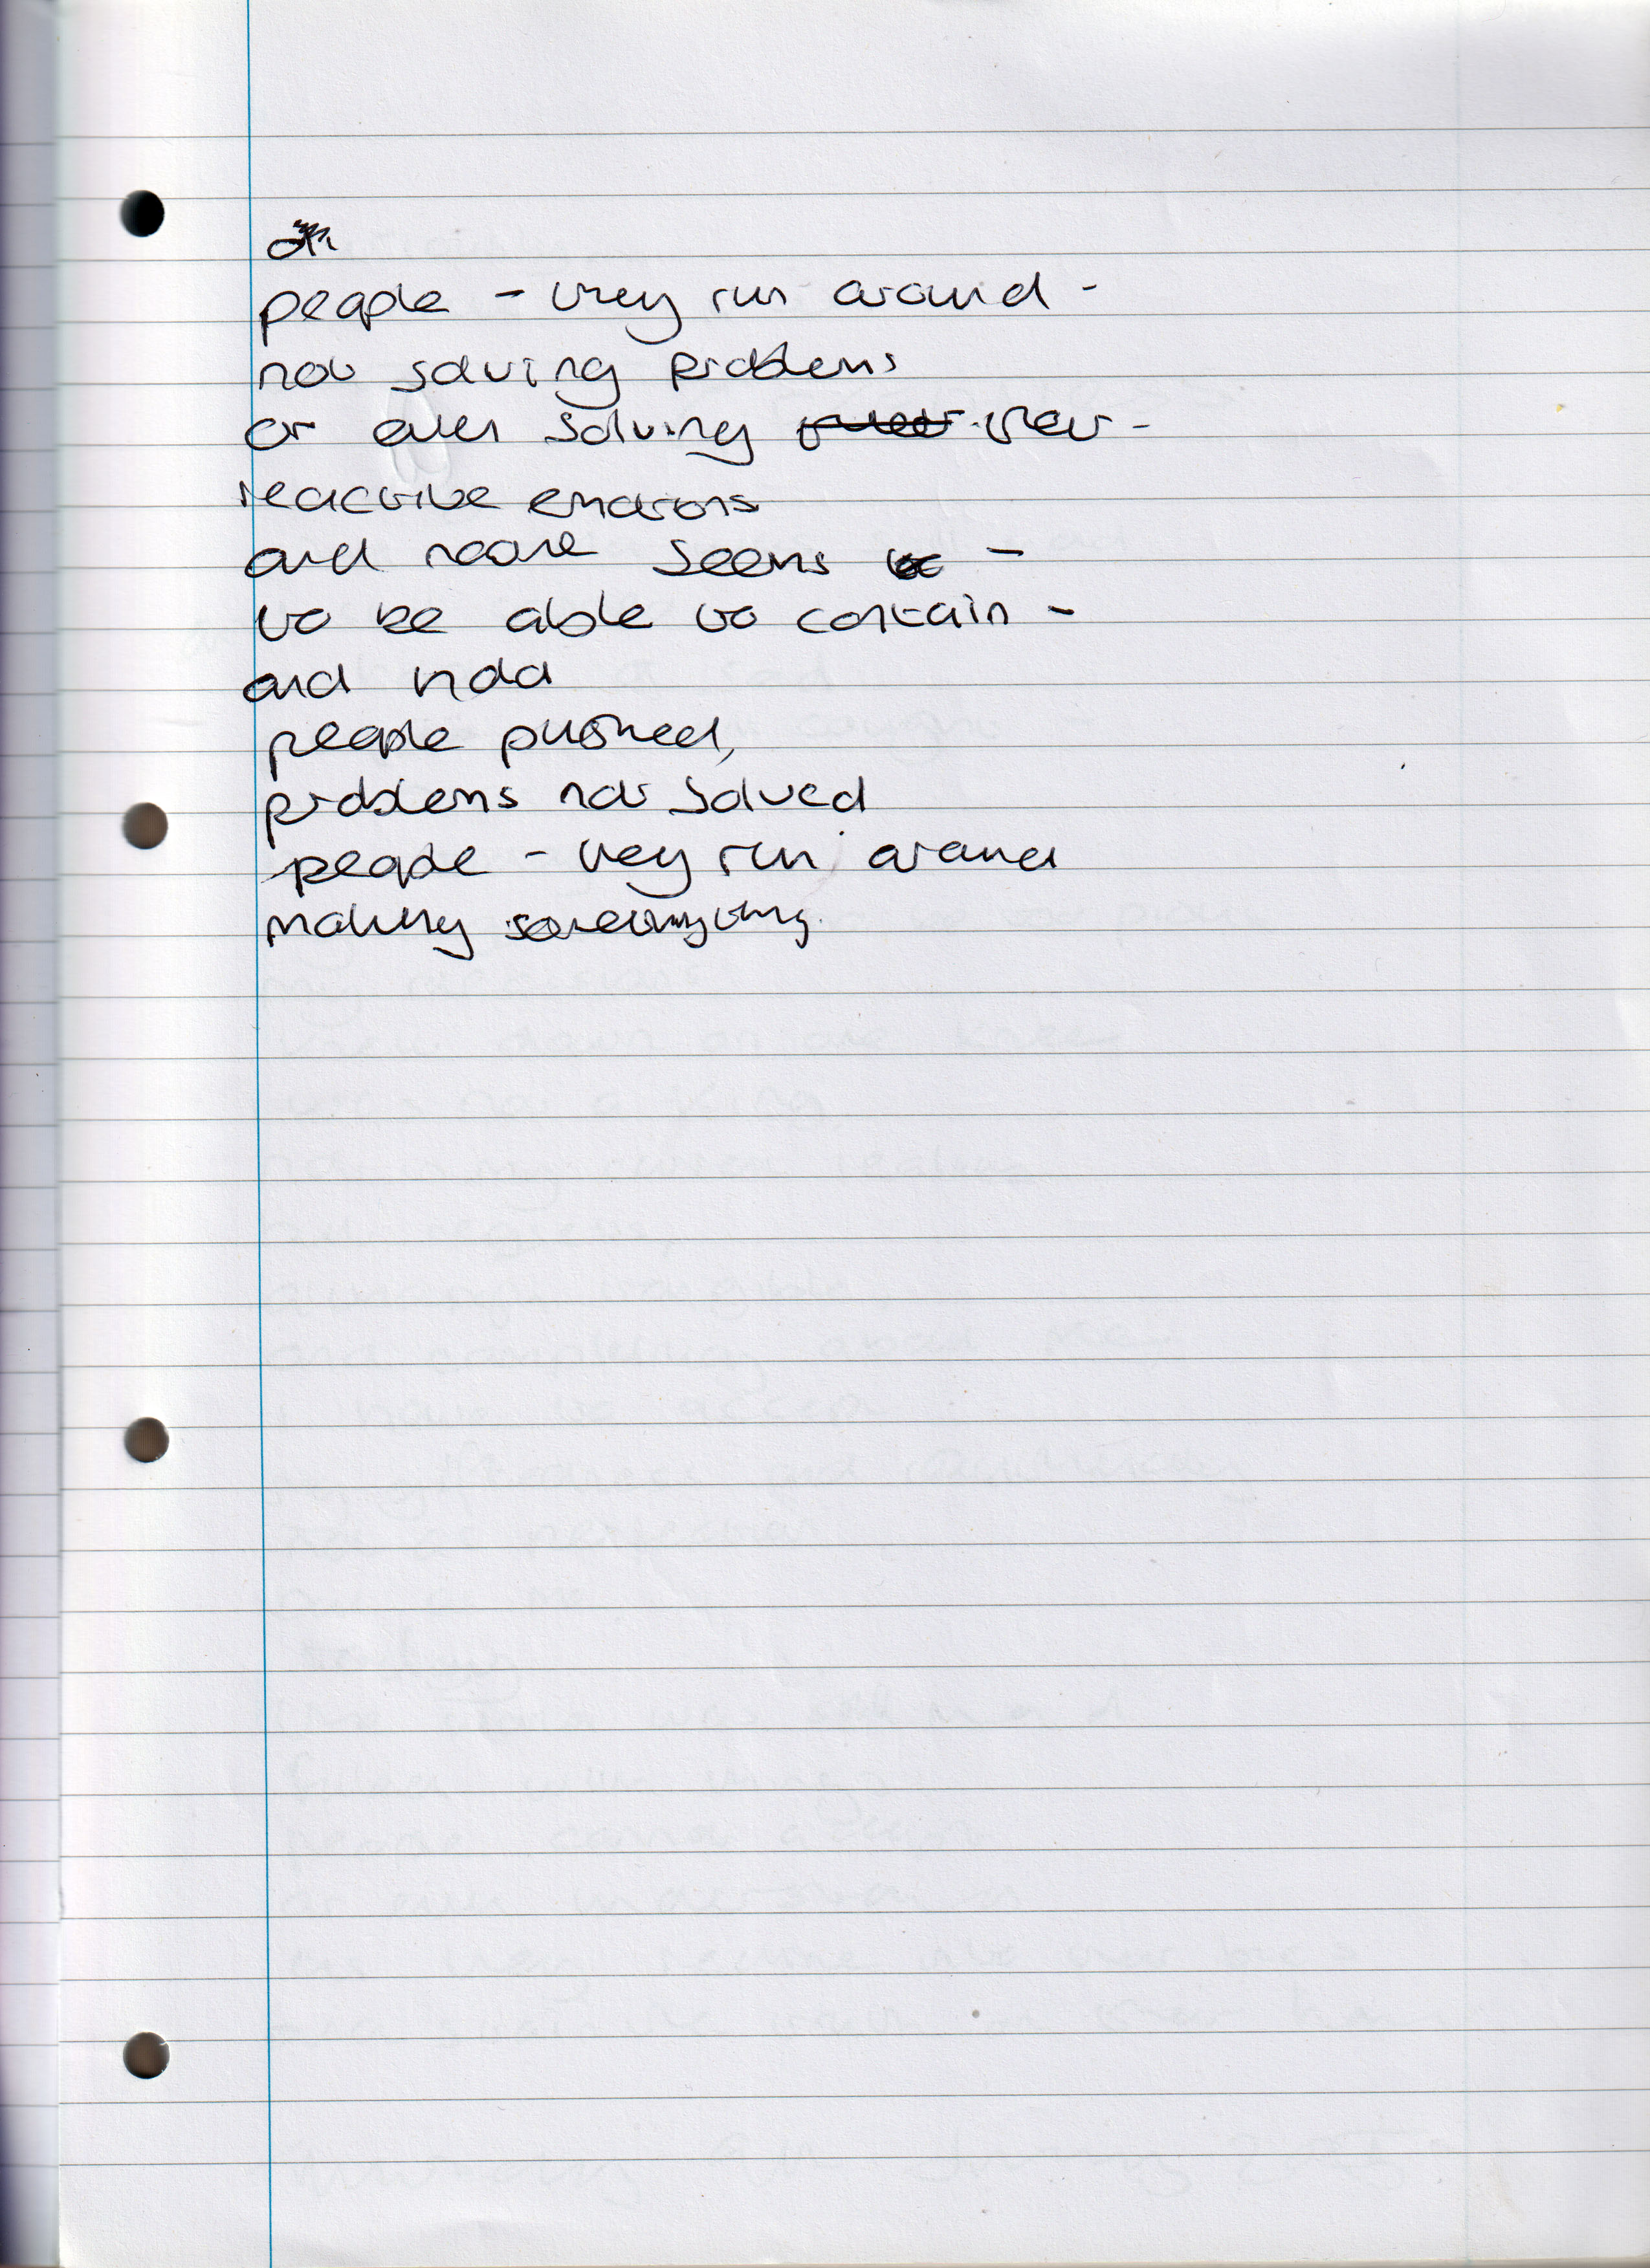 people - they run around -
not solving problems
or even solving their -
reactive emotions
and noone seems -
to be able to contain -
and hold
people pushed,
problems not solved
people - they run around
making